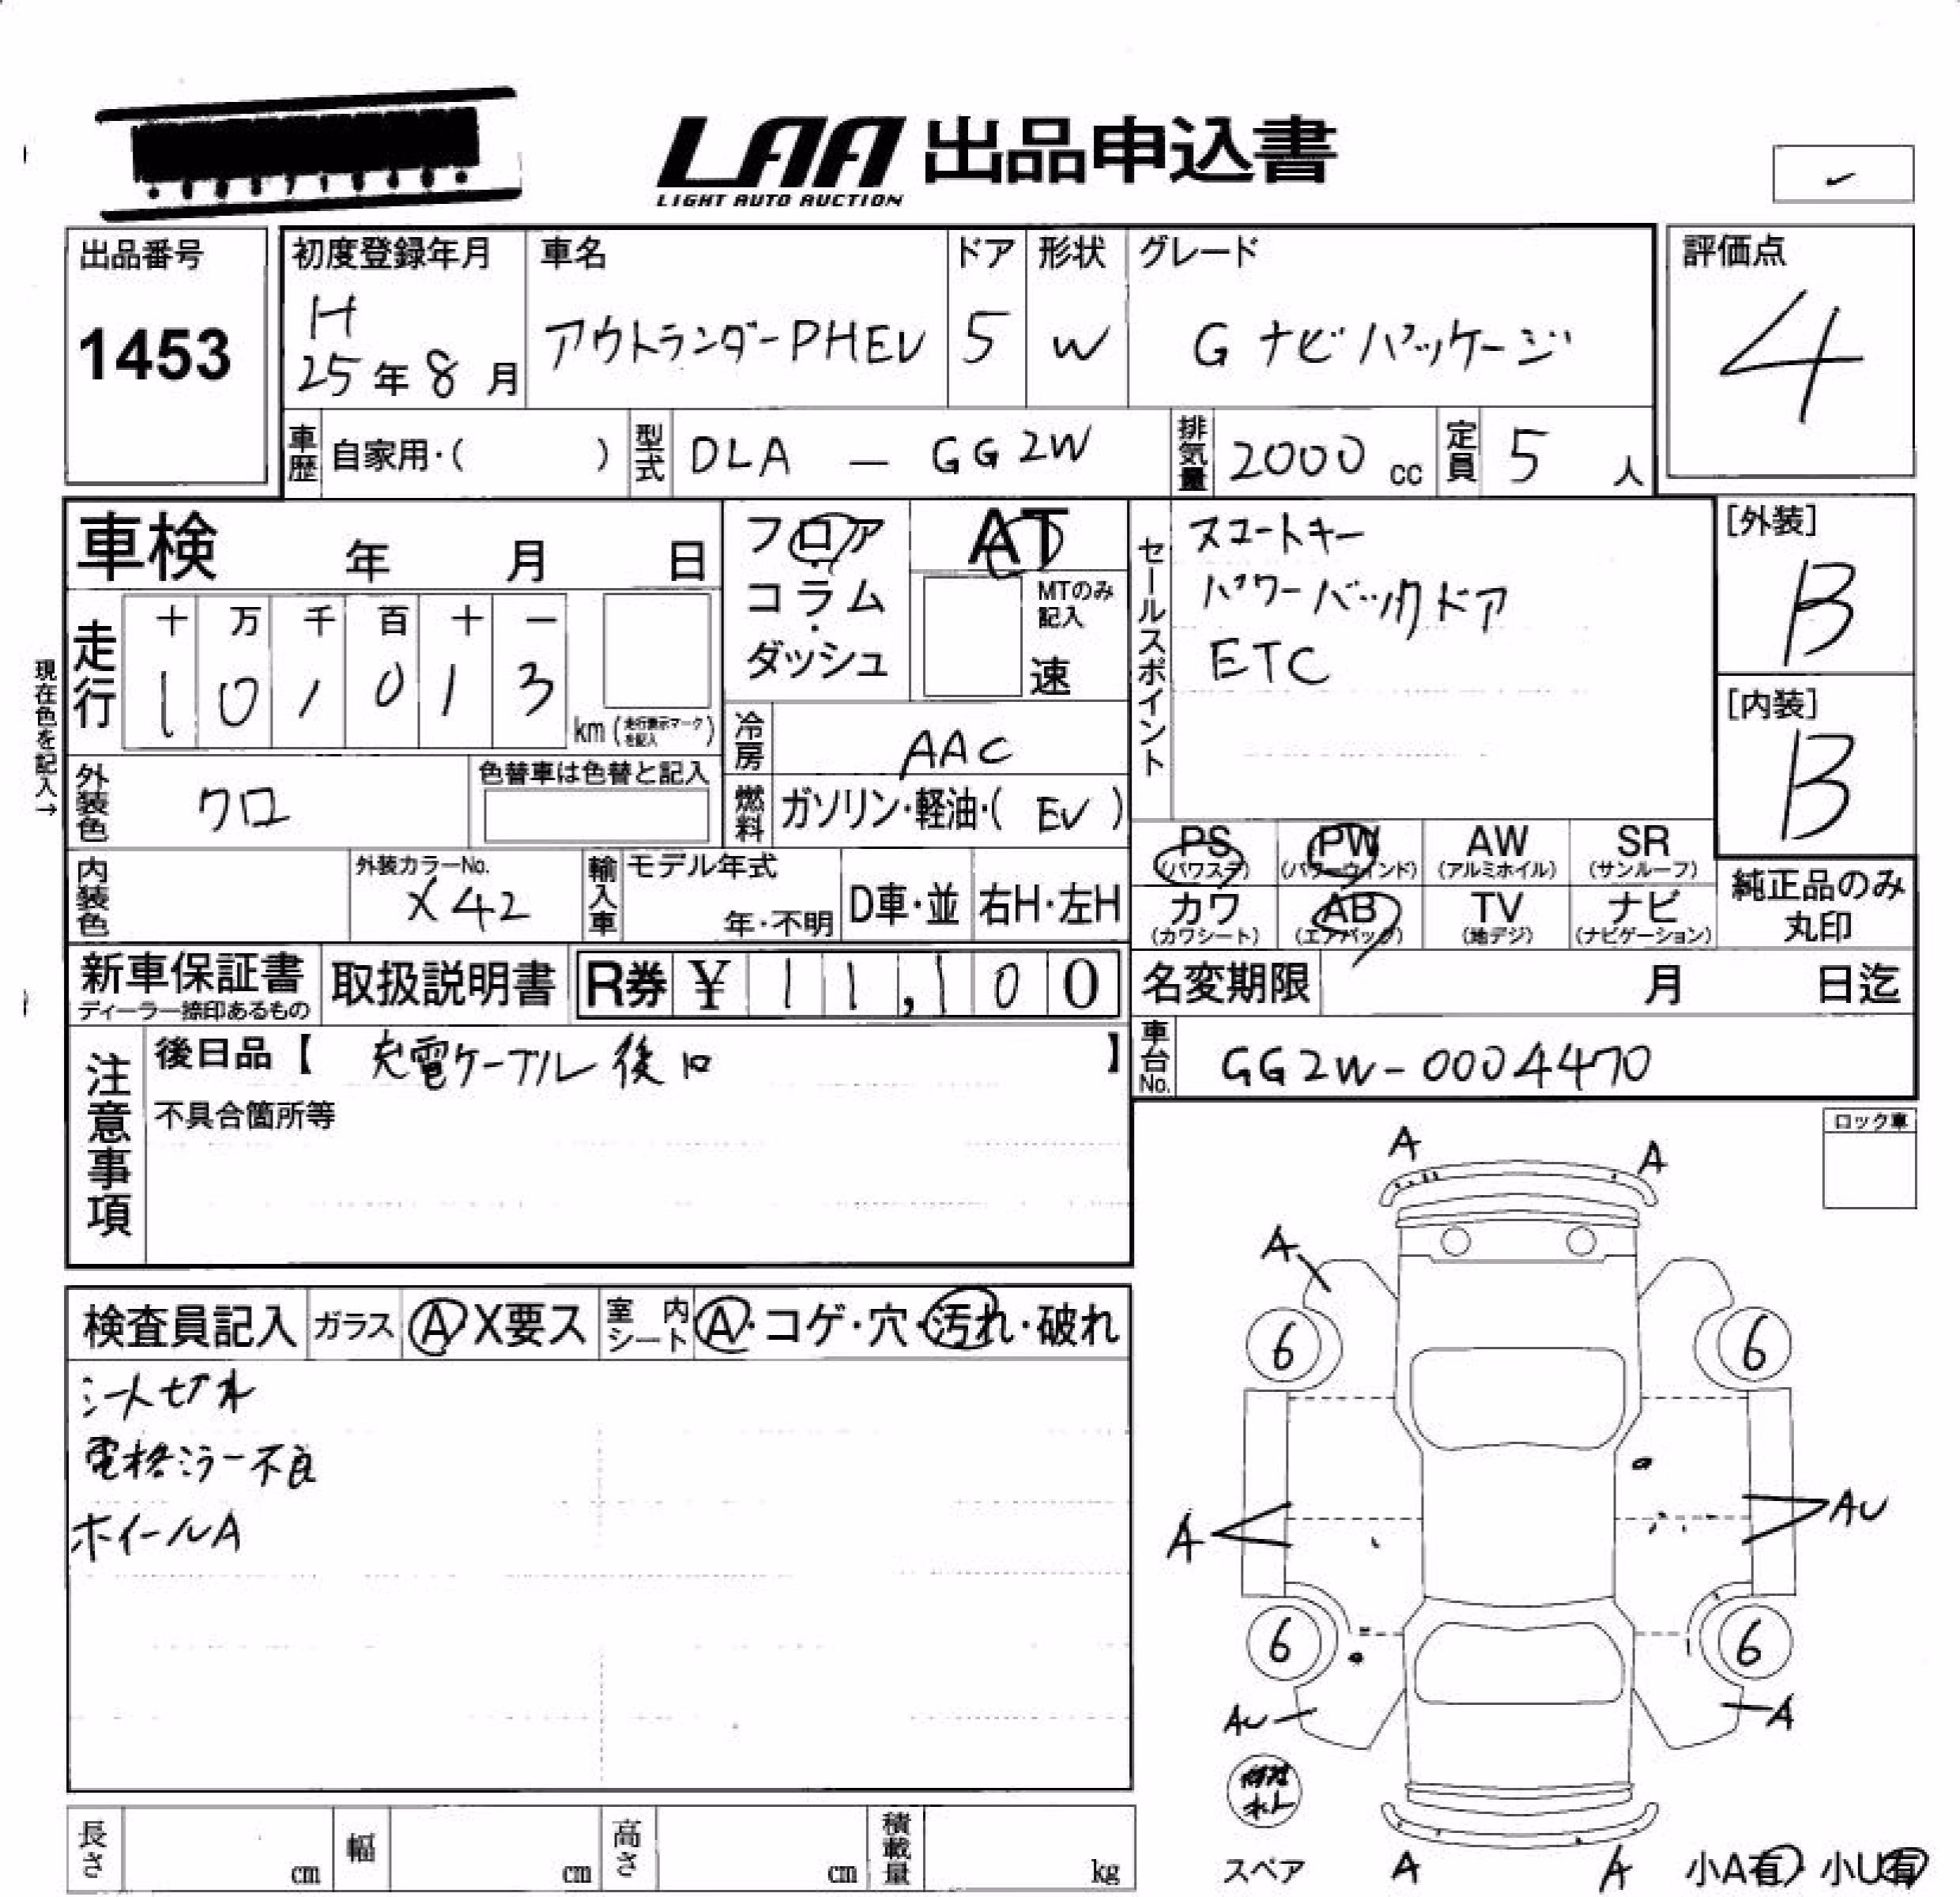 LAA 出品申込書
LIGHT AUTO AUCTION
出品番号
1453
初度登録年月
H
25年8月
車名
アウトランダーPHEV
ドア
5
形状
W
グレード
G ナビパッケージ
評価点
4
車歴 自家用・( )
型式 DLA - GG2W
排気量 2000 cc
定員 5 人
車検 年 月 日
フロア
コラム
・
ダッシュ
AT
MTのみ
記入
速
セールスポイント
スマートキー
パワーバックドア
ETC
[外装]
B
[内装]
B
現在色を記入→
走行
十 万 千 百 十 一
1 0 1 0 1 3
km (走行表示マークを記入)
冷房 AAC
外装色 クロ
色替車は色替と記入
燃料 ガソリン・軽油・( EV )
内装色
外装カラーNo.
X42
輸入車
モデル年式
年・不明
D車・並
右H・左H
PS (パワステ)
PW (パワーウィンド)
AW (アルミホイル)
SR (サンルーフ)
カワ (カワシート)
AB (エアバッグ)
TV (地デジ)
ナビ (ナビゲーション)
純正品のみ
丸印
新車保証書
ディーラー捺印あるもの
取扱説明書
R券 ¥ 11,100
名変期限 月 日迄
注意事項
後日品【 充電ケーブル後日 】
不具合箇所等
車台No. GG2W-0004470
ロック車
検査員記入
ガラス A X要ス
室内シート A・コゲ・穴・汚れ・破れ
シート切れ
電格ミラー不良
ホイールA
A A
A
6 6
A AU
6 6
AU A
スペア
A A
小A有・小U有
長さ cm
幅 cm
高さ cm
積載量 kg